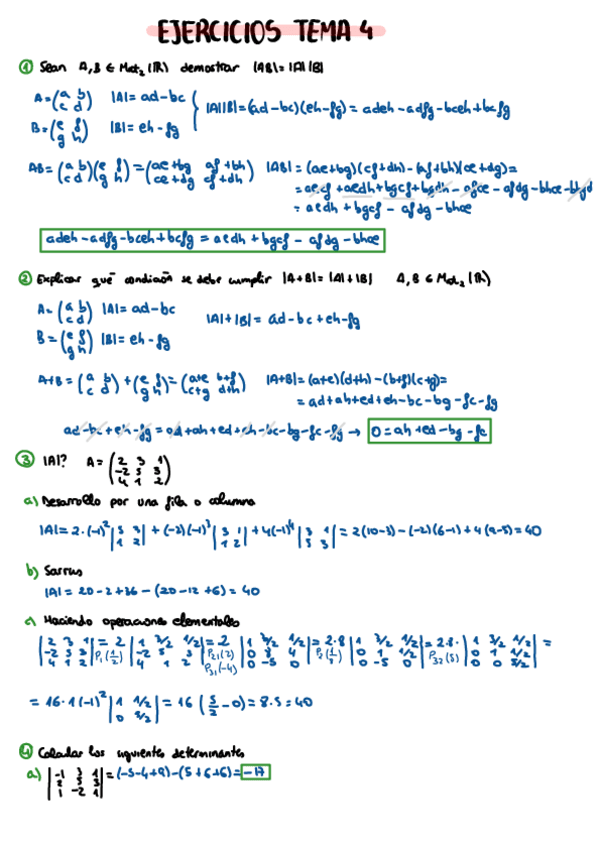 EJERCICIOS TEMA 4
① Sean A, B ∈ Mat₂(ℝ) demostrar |AB| = |A||B|
A = (a b / c d) |A| = ad - bc
B = (e f / g h) |B| = eh - fg
|A||B| = (ad - bc)(eh - fg) = adeh - adfg - bceh + bcfg
AB = (a b / c d)(e f / g h) = (ae+bg af+bh / ce+dg cf+dh) |AB| = (ae+bg)(cf+dh) - (af+bh)(ce+dg) =
= aecf + aedh + bgcf + bgdh - afce - afdg - bhce - bhgd
= aedh + bgcf - afdg - bhce
adeh - adfg - bceh + bcfg = aedh + bgcf - afdg - bhce
② Explicar qué condición se debe cumplir |A+B| = |A|+|B| A, B ∈ Mat₂(ℝ)
A = (a b / c d) |A| = ad - bc
B = (e f / g h) |B| = eh - fg
|A|+|B| = ad - bc + eh - fg
A+B = (a b / c d) + (e f / g h) = (a+e b+f / c+g d+h) |A+B| = (a+e)(d+h) - (b+f)(c+g) =
= ad + ah + ed + eh - bc - bg - fc - fg
ad - bc + eh - fg = ad + ah + ed + eh - bc - bg - fc - fg → 0 = ah + ed - bg - fc
③ |A|? A = (2 3 1 / -2 5 3 / 4 1 2)
a) Desarrollo por una fila o columna
|A| = 2·(-1)² |5 3 / 1 2| + (-2)(-1)³ |3 1 / 1 2| + 4(-1)⁴ |3 1 / 5 3| = 2(10-3) - (-2)(6-1) + 4(9-5) = 40
b) Sarrus
|A| = 20 - 2 + 36 - (20 - 12 + 6) = 40
c) Haciendo operaciones elementales
|2 3 1 / -2 5 3 / 4 1 2| = 2 |1 3/2 1/2 / -2 5 3 / 4 1 2| = 2 |1 3/2 1/2 / 0 8 4 / 0 -5 0| = 2·8 |1 3/2 1/2 / 0 1 1/2 / 0 -5 0| = 2·8· |1 3/2 1/2 / 0 1 1/2 / 0 0 5/2| =
= 16·1(-1)² |1 1/2 / 0 5/2| = 16 (5/2 - 0) = 8·5 = 40
④ Calcular los siguientes determinantes
a) |-1 3 1 / 2 5 3 / 1 -2 1| = (-5-4+9) - (5+6+6) = -17